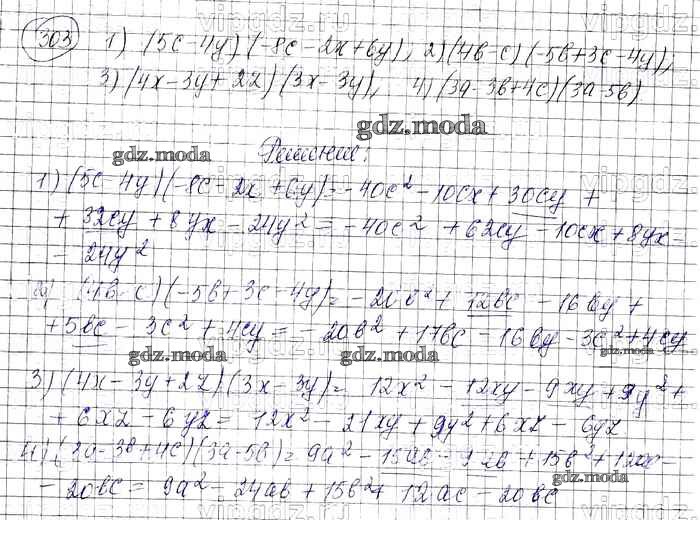 303 1) (5c-4y)(-8c-2x+6y), 2) (4b-c)(-5b+3c-4y),
3) (4x-3y+2z)(3x-3y), 4) (3a-3b+4c)(3a-5b)
gdz.moda
gdz.moda
Решение:
1) (5c-4y)(-8c-2x+6y)=-40c²-10cx+30cy+
+32cy+8yx-24y²=-40c²+62cy-10cx+8yx-
-24y²
2) (4b-c)(-5b+3c-4y)=-20b²+12bc-16by+
+5bc-3c²+4cy=-20b²+17bc-16by-3c²+4cy
gdz.moda gdz.moda gdz.moda
3) (4x-3y+2z)(3x-3y)=12x²-12xy-9xy+9y²+
+6xz-6yz=12x²-21xy+9y²+6xz-6yz
4) (3a-3b+4c)(3a-5b)=9a²-15ab-9ab+15b²+12ac-
-20bc=9a²-24ab+15b²+12ac-20bc
gdz.moda
gdz.moda
vipgdz.ru